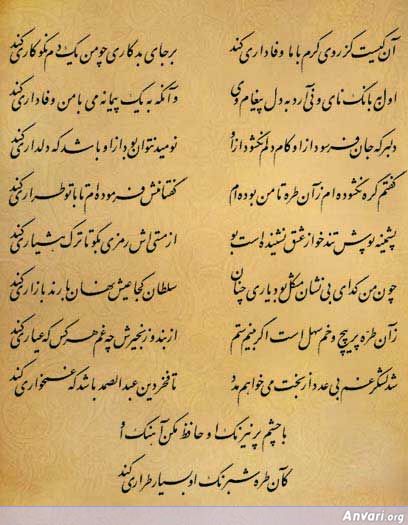 آن کیست کز روی کرم با ما وفاداری کند بر جای بدکاری چو من یک دم نکوکاری کند
اول به بانگ نای و نی آرد به دل پیغام وی وآنگه به یک پیمانه می با من وفاداری کند
دلبر که جان فرسود از او کام دلم نگشود از او نومید نتوان بود از او باشد که دلداری کند
گفتم گره نگشوده‌ام زآن طره تا من بوده‌ام گفتا منش فرموده‌ام تا با تو طراری کند
پشمینه پوش تندخو از عشق نشنیده است بو از مستی‌اش رمزی بگو تا ترک هشیاری کند
چون من گدای بی نشان مشکل بود یاری چنان سلطان کجا عیش نهان با رند بازاری کند
زآن طره پرپیچ و خم سهل است اگر بینم ستم از بند و زنجیرش چه غم هر کس که عیاری کند
شد لشکر غم بی عدد از بخت می‌خواهم مدد تا فخر دین عبدالصمد باشد که غمخواری کند
با چشم پر نیرنگ او حافظ مکن آهنگ او
کآن طره شبرنگ او بسیار طراری کند
Anvari.org